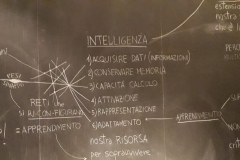 INTELLIGENZA
1) ACQUISIRE DATI (INFORMAZIONI)
2) CONSERVARE MEMORIA
3) CAPACITÀ CALCOLO
4) ATTIVAZIONE
5) RAPPRESENTAZIONE
6) ADATTAMENTO
nostra RISORSA
per sopravvivere
RETI che
SI RICONFIGURANO
= APPRENDIMENTO
APPRENDIMENTO
nostra